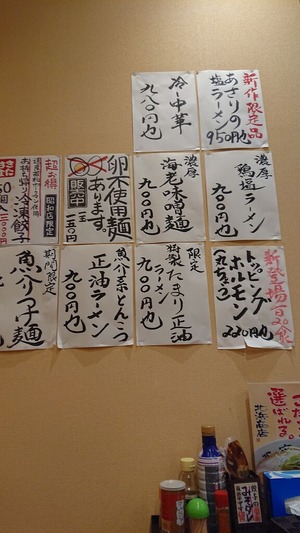 新作限定品
あさりの
塩ラーメン
950円也
冷・中華
九八〇円也
濃厚
鶏塩ラーメン
九〇〇円也
濃厚
海老味噌麺
九〇〇円也
卵不使用麺
あります。
販売中
一玉
150円
超お得
昭和店限定
お持ち帰り冷凍餃子
50個入
新登場
トッピング
ホルモン
丸ちょう
220円也
限定
特製たまり正油
ラーメン
九〇〇円也
魚介系とんこつ
正油ラーメン
九〇〇円也
期間限定
魚介つけ麺
選ばれる。